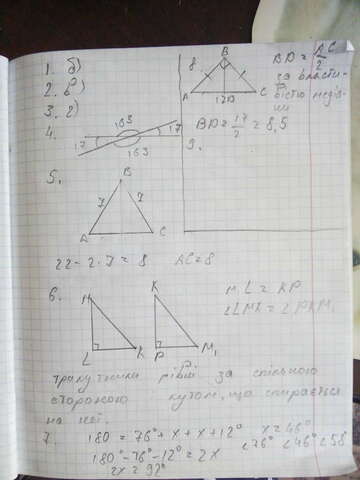 1. б)
2. в)
3. г)
4.
163
17
17
163
5.
B
7
7
A
C
22 - 2·7 = 8 AC = 8
6.
K
L
K
P
M₁
ML = KP
трикутники рівні за спільною
стороною кутом, що спирається
на неї.
7
180 = 76° + x + x + 12° x = 46°
180° - 76° - 12° = 2x <76° <46° <58°
2x = 92°
8.
B
A
C
BD = AC/2
за власти-
вістю медіа-
ни
BD = 17/2 = 8,5
9.